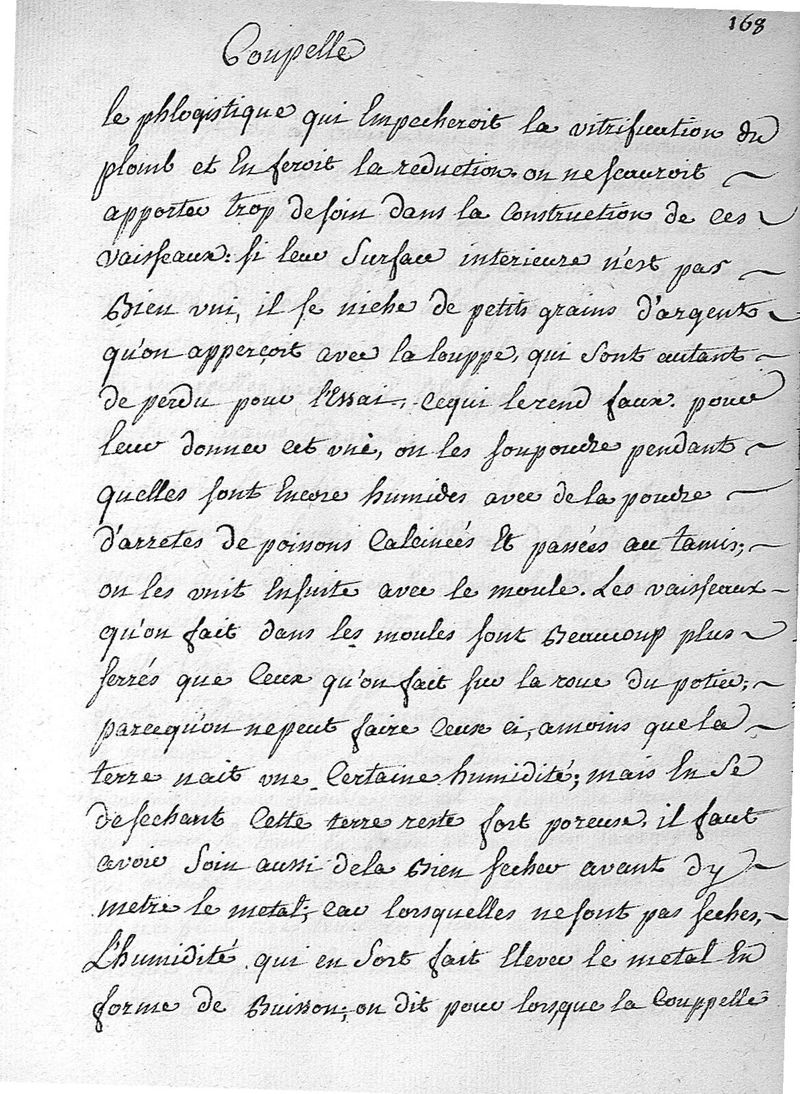 168
Coupelle
le phlogistique qui Empecheroit la vitrification du
plomb et En feroit la reduction. on ne scauroit
apporter trop de soin dans la Construction de ces
vaisseaux: si leur Surface interieure n'est pas
Bien vni, il se niche de petits grains d'argent
qu'on apperçoit avec la louppe, qui Sont autant
de perdu pour l'Essai, Cequi le rend faux. pour
leur donner cet vni, on les soupoudre pendant
quelles sont Encore humides avec de la poudre
d'arretes de poissons Calcinées Et passées au tamis;
on les vnit Ensuite avec le moule. Les vaisseaux
qu'on fait dans les moules sont Beaucoup plus
serrés que Ceux qu'on fait sur la roue du potier;
parcequ'on ne peut faire Ceux ci, amoins que la
terre nait vne Certaine humidité; mais En Se
desechant Cette terre reste fort poreuse. il faut
avoir Soin aussi de la Bien secher avant dy
metre le metal; car lorsquelles ne sont pas seches,
L'humidité qui en Sort fait Elever le metal En
forme de Buisson; on dit pour lors, que la Couppelle